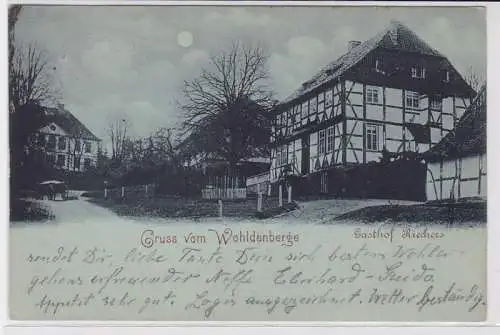 Gruss vom Wohldenberge
Gasthof Riechers
sendet Dir, liebe Tante Dein sich besten Wohler-
gehens erfreuender Neffe Eberhard - Guido
Appetit sehr gut. Logis ausgezeichnet. Wetter beständig.